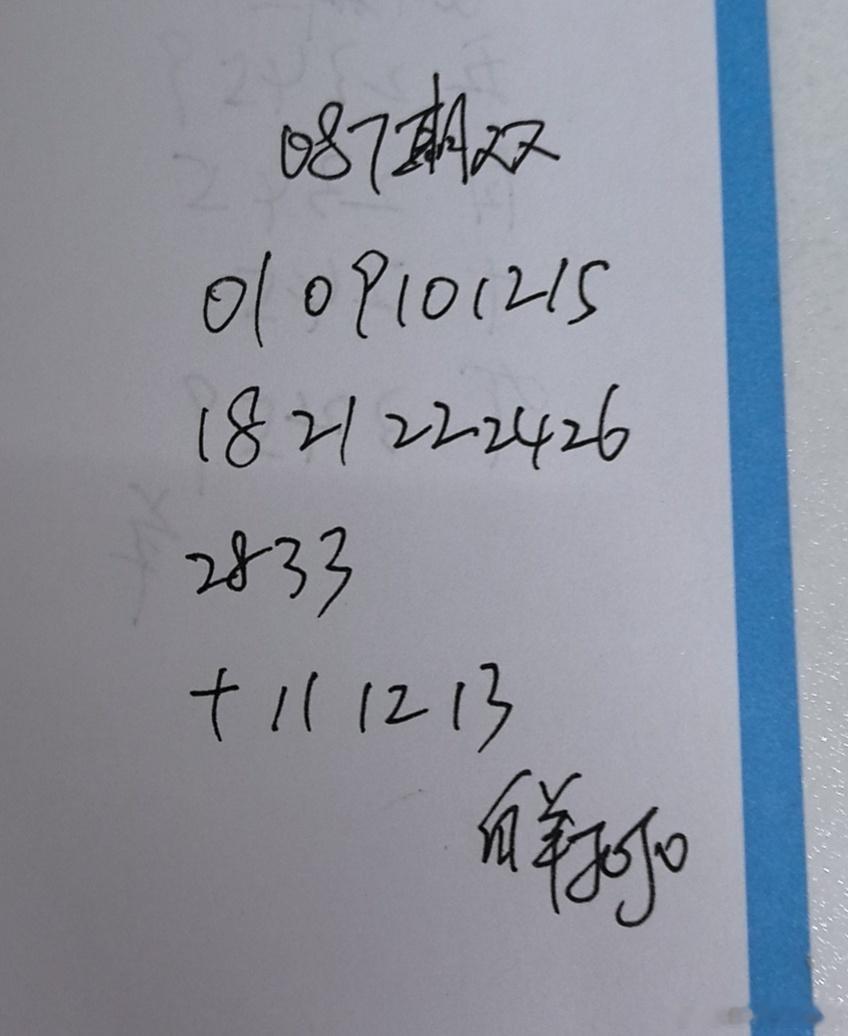 087期双
01 09 10 12 15
18 21 22 24 26
28 33
+ 11 12 13